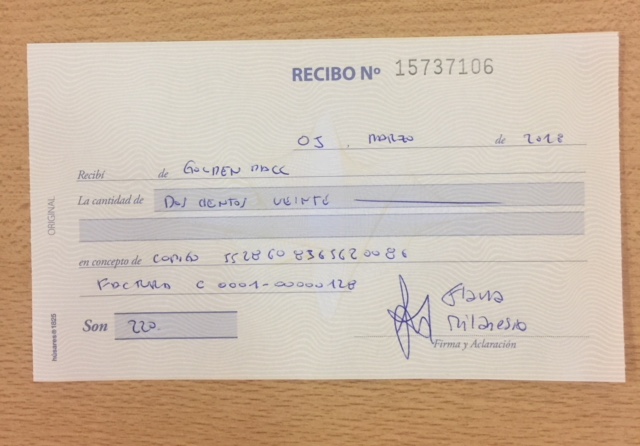 RECIBO Nº 15737106
05 . MARZO de 2028
Recibí de GOLDEN
La cantidad de DOSCIENTOS VEINTE
en concepto de CODIGO 5528608365620086
FACTURA C 0001-00000128
Son 220.
Firma y Aclaración
ORIGINAL
húsares® 1825